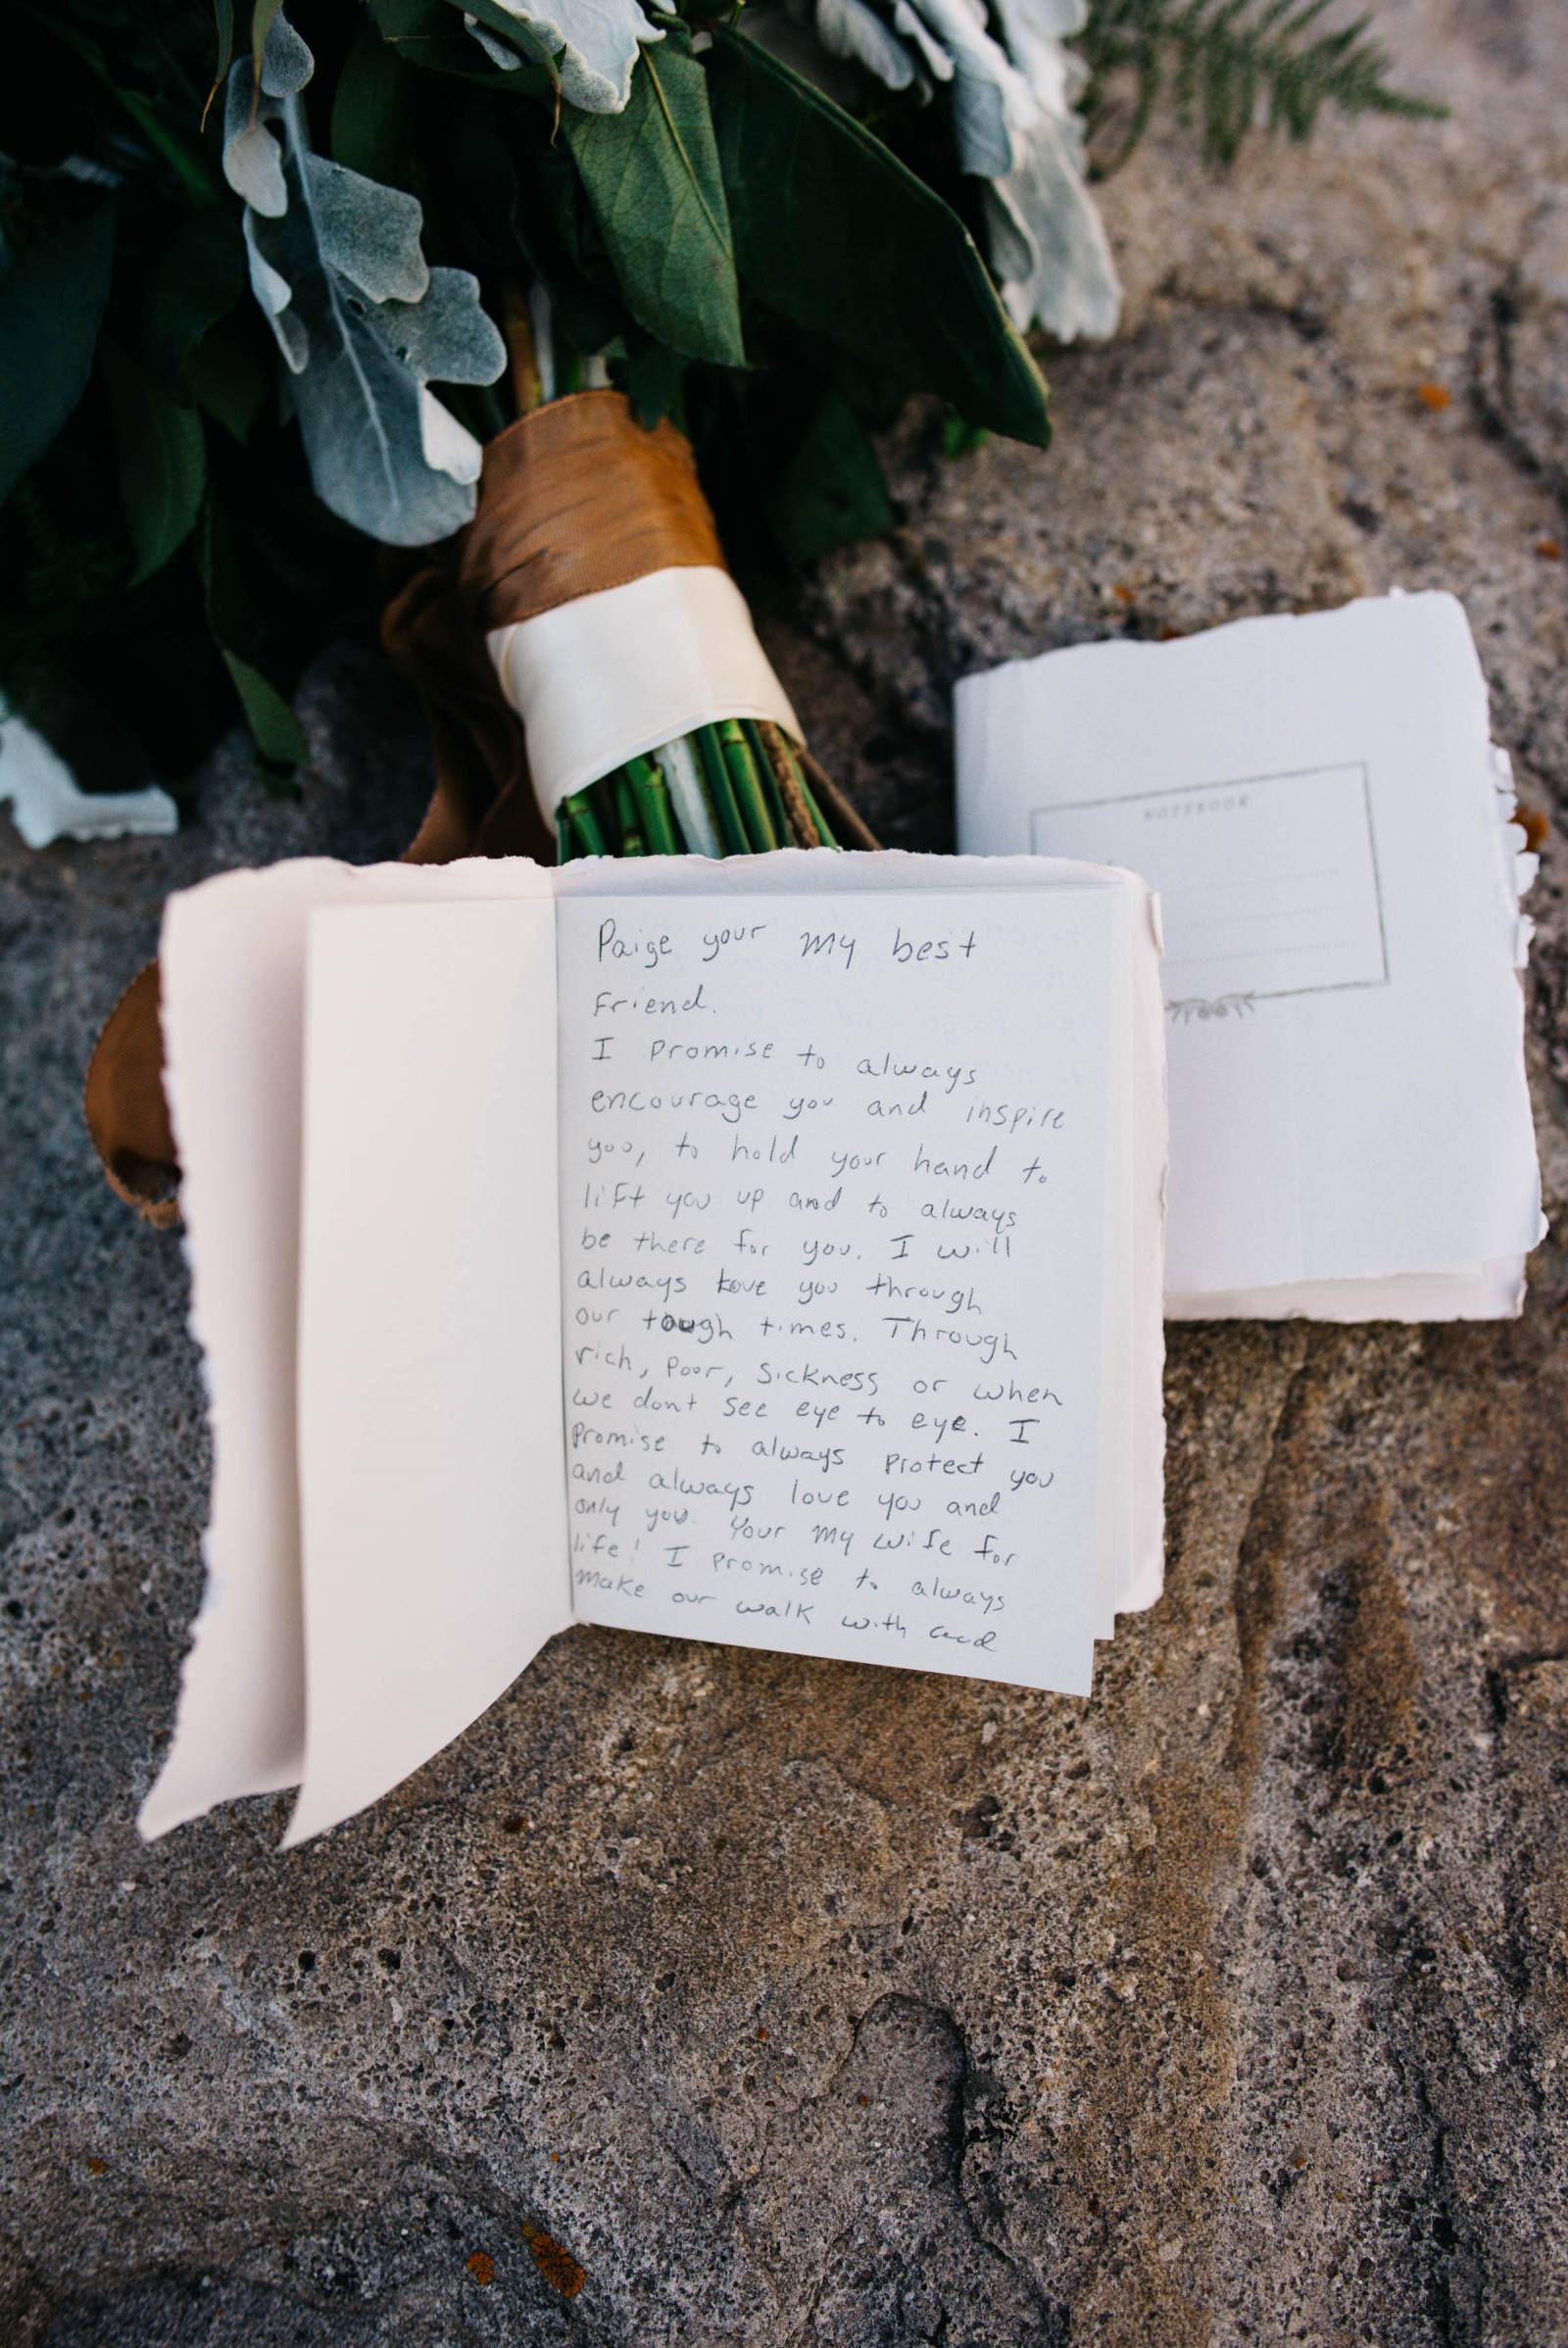 NOTEBOOK
Paige your my best
Friend.
I promise to always
encourage you and inspire
you, to hold your hand to
lift you up and to always
be there for you. I will
always love you through
our tough times. Through
rich, poor, sickness or when
we dont see eye to eye. I
Promise to always protect you
and always love you and
only you. Your my wife for
life! I promise to always
make our walk with God